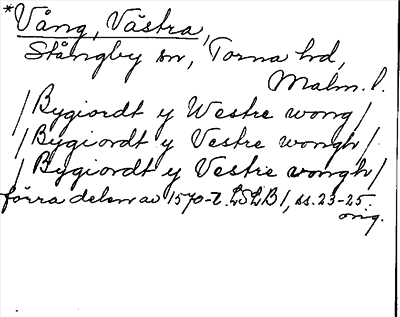 *Vång, Västra,
Stångby sn, Torna hd,
Malm. l.
/Bygiordt y Westre wong/
/Bygiordt y Vestre wongh/.
/Bygiordt y Vestre wongh/
förra delen av 1570-t. LSLB1, ss. 23-25.
orig.